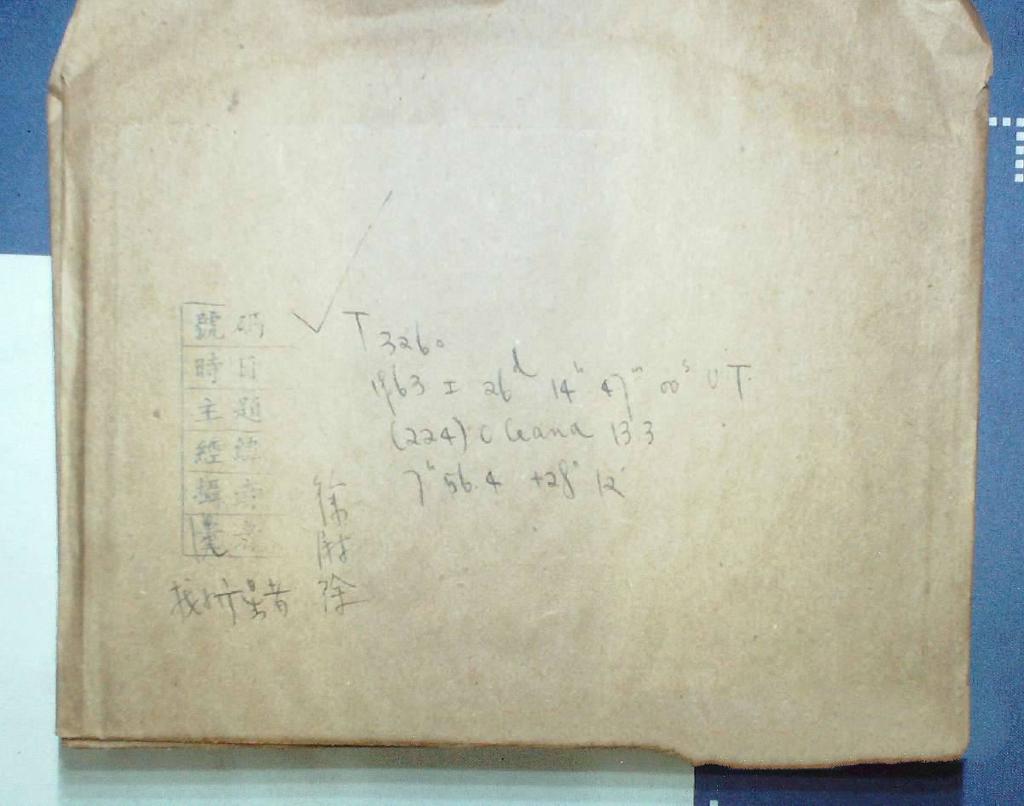 號碼 T 3260
時日 1963 I 26d 14h 47m 00s UT
主題 (224) Oceana 13.3
經緯 7h 56.4 +28° 12'
攝者 徐
找小行星者 徐